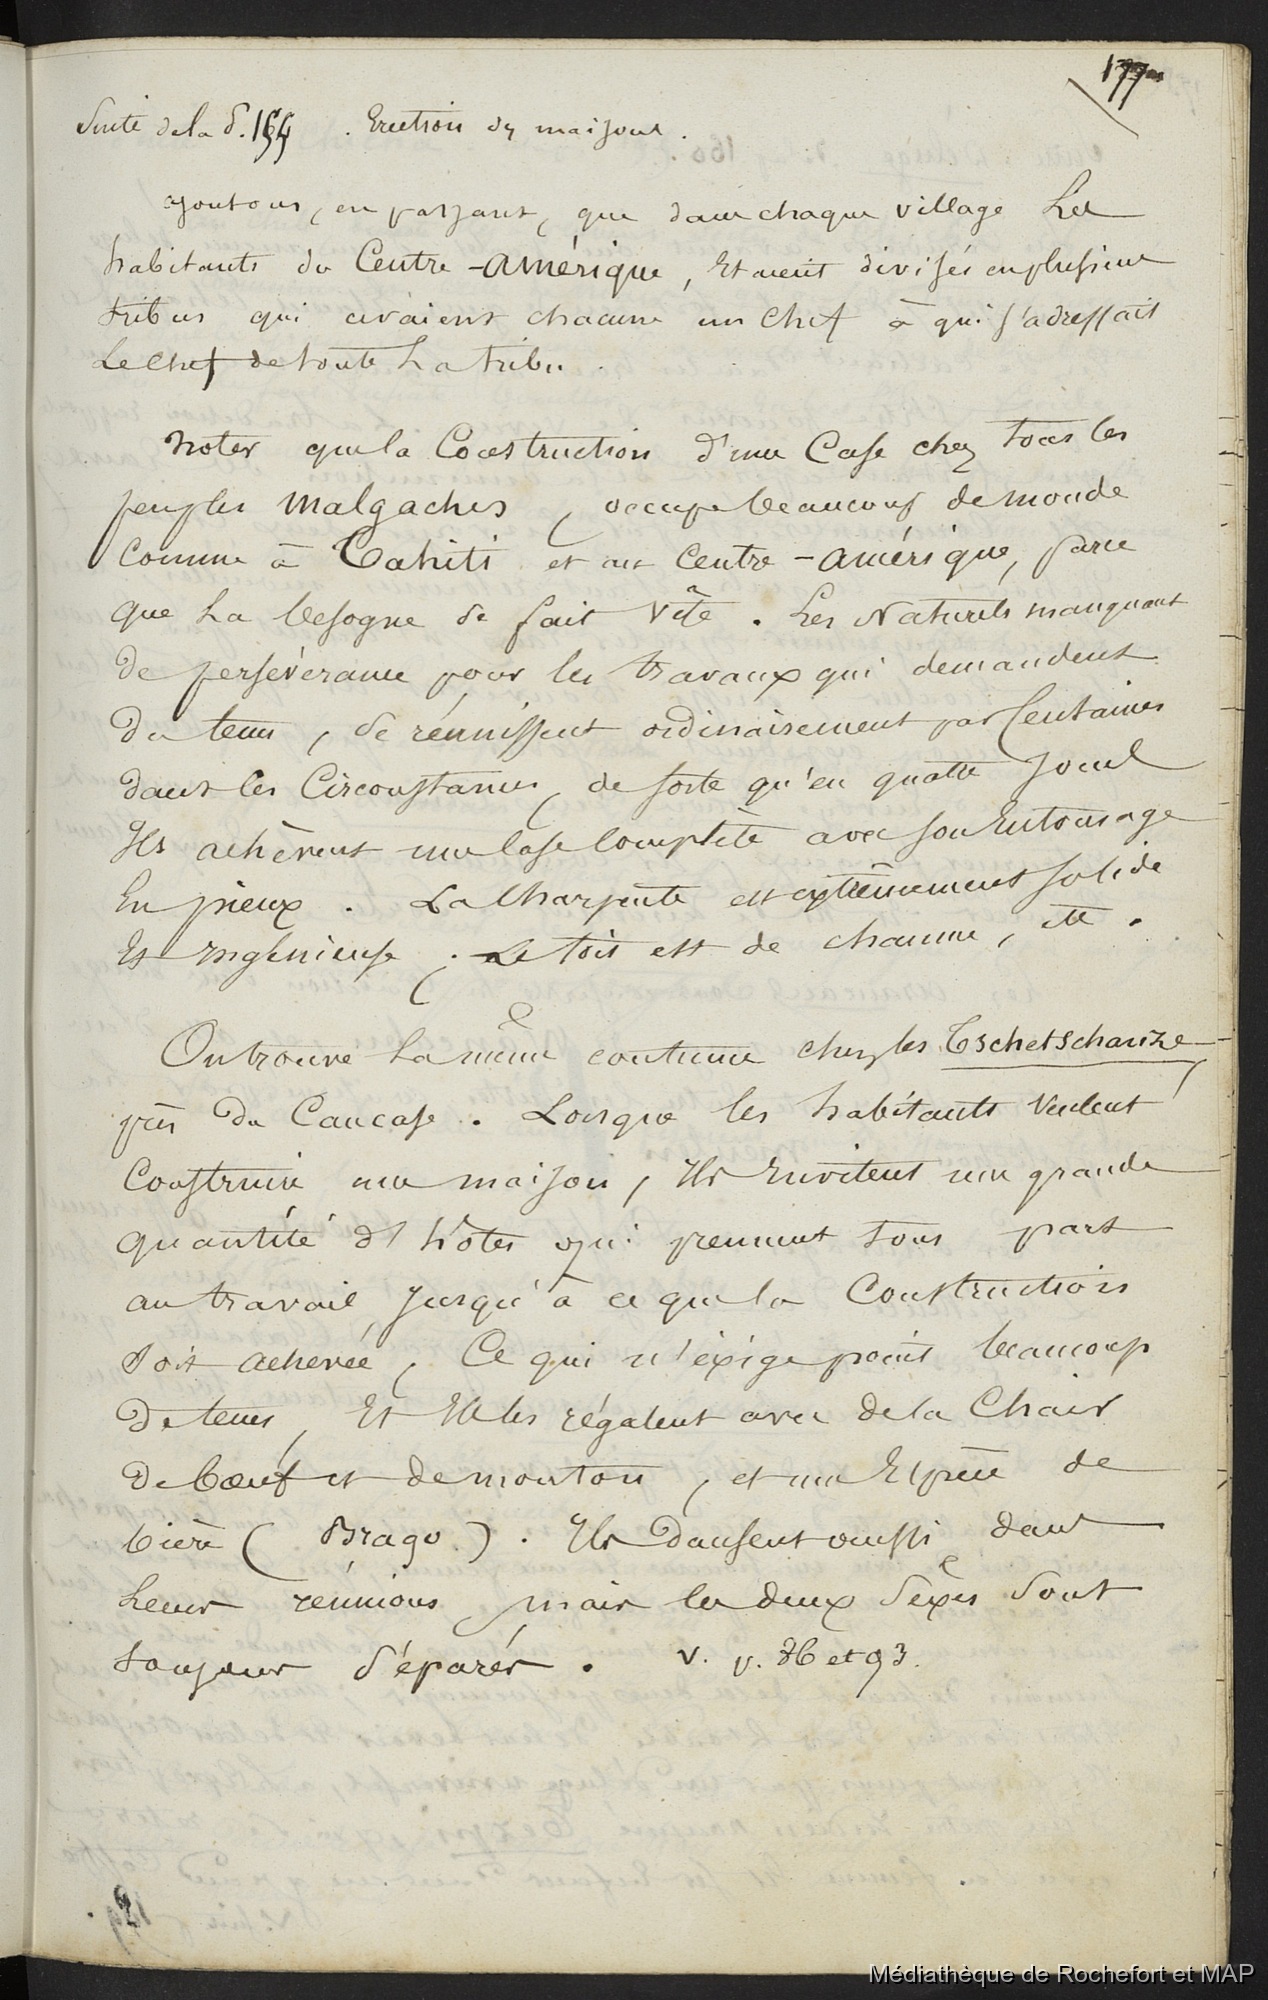 177
Suite de la p. 154. Erection des maisons.
ajoutons, en passant, que dans chaque village Les
habitants du Centre-Amérique, Etaient divisés en plusieurs
tribus qui avaient chacune un Chef à qui s'adressait
Le Chef de toute La tribu.
Noter que la Construction d'une Case chez tous les
peuples Malgaches, occupe beaucoup de monde
comme à Tahiti et au Centre-Amérique, parce
que La besogne se fait vite. Les Naturels manquant
de persévérance pour les travaux qui demandent
du tems, se réunissent ordinairement par Centaines
dans les Circonstances, de sorte qu'en quatre jours
Ils achèvent une Case Complète avec son Entourage
En pieux. La Charpente est extrêmement solide
Et Ingénieuse; Le toit est de chaume, etc.
On trouve La même coutume chez les Tschetschenze
près du Caucase. Lorsque les habitants veulent
Construire une maison, Ils Invitent une grande
quantité d'hôtes qui prennent tous part
au travail, Jusqu'à ce que la Construction
soit achevée, Ce qui n'éxige point beaucoup
de tems, Et Ils les régalent avec de la Chair
de bœuf et de mouton, et une Espèce de
bière (Brago). Ils Dansent aussi dans
Leurs réunions, mais les deux Sèxes Sont
toujours Séparés. v. p. 36 et 93.
Médiathèque de Rochefort et MAP